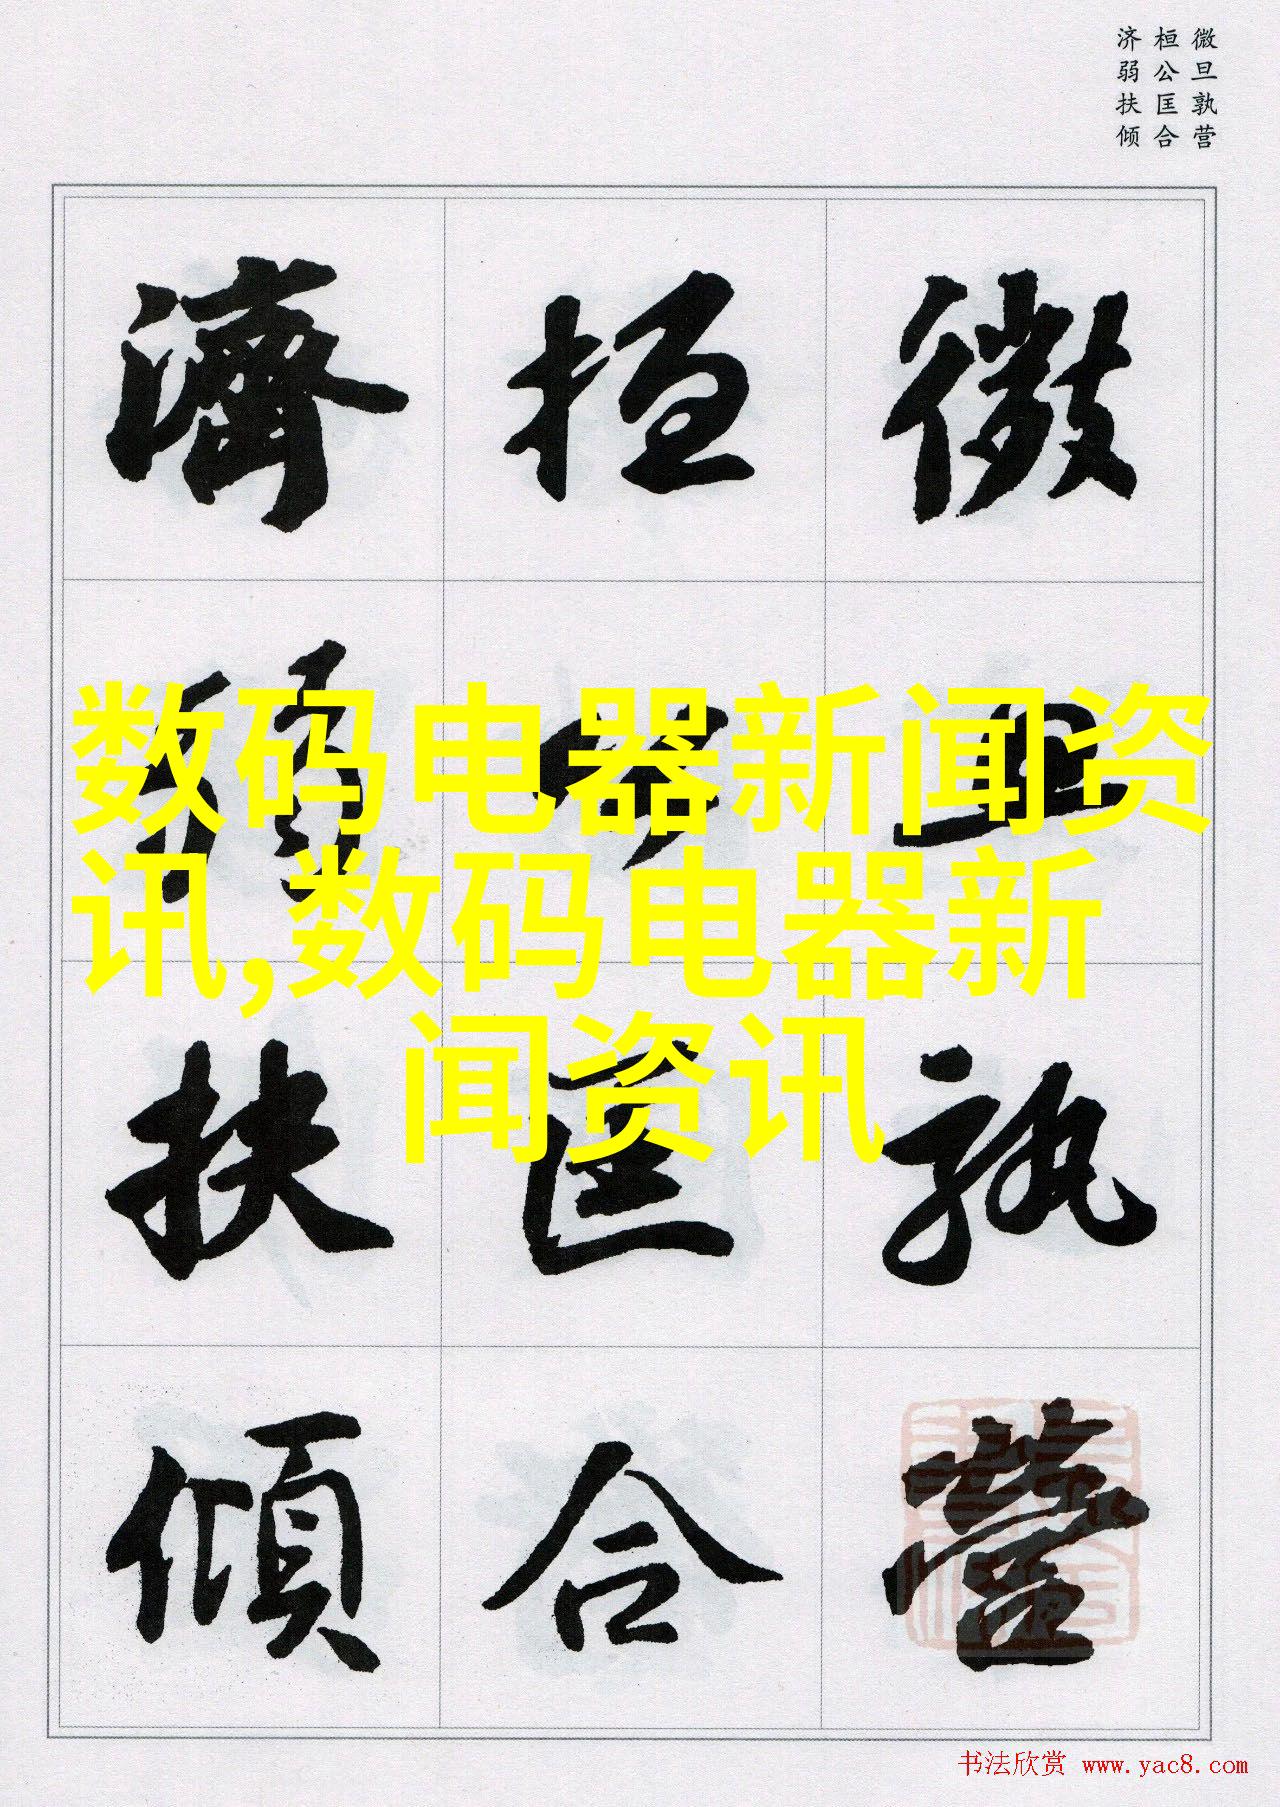 微旦孰营
桓公匡合
济弱扶倾
微旦孰營
桓公匡合
濟弱扶傾
数码电器新闻资
讯,数码电器新
闻资讯
书法欣赏 www.yac8.com